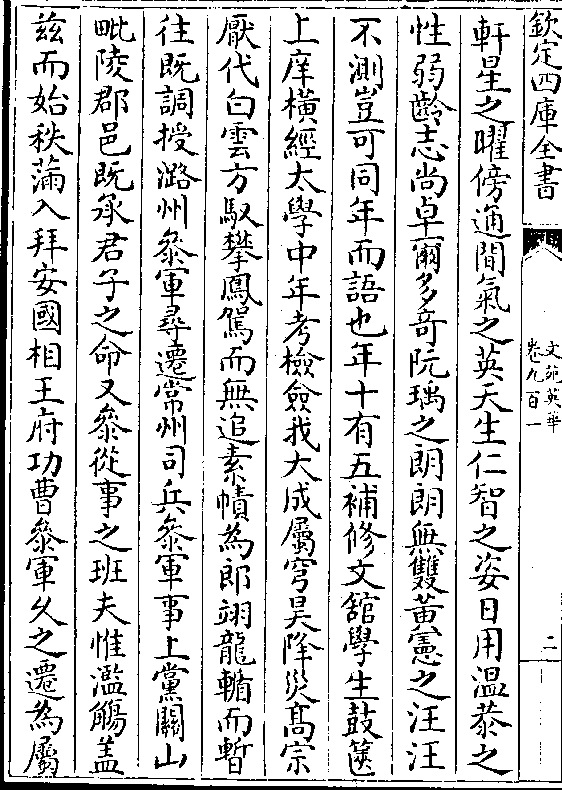 欽定四庫全書
文苑英華
卷九百一
二
軒星之曜傍通間氣之英天生仁智之姿日用温恭之
性弱齡志尚卓爾多奇阮瑀之朗朗無雙黃憲之汪汪
不測豈可同年而語也年十有五補修文舘學生鼓篋
上庠横經太學中年考檢僉我大成屬穹昊降災髙宗
厭代白雲方馭攀鳳駕而無追素幘為郎翊龍輴而暫
往既調授潞州叅軍尋遷常州司兵叅軍事上黨關山
毗陵郡邑既承君子之命又叅從事之班夫惟濫觴盖
兹而始秩滿入拜安國相王府功曹叅軍乆之遷為屬